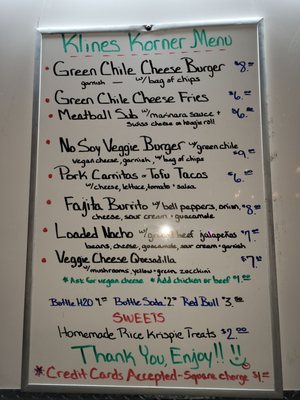 Klines Korner Menu
Green Chile Cheese Burger $8.
garnish — w/ bag of chips
Green Chile Cheese Fries $6.
Meatball Sub w/ marinara sauce + $6.
Swiss cheese on hoagie roll
No Soy Veggie Burger w/ green chile
vegan cheese, garnish, w/ bag of chips $9.
Pork Carnitas or Tofu Tacos $6.
w/ cheese, lettuce, tomato + salsa
Fajita Burrito w/ bell peppers, onion, $8.
cheese, sour cream + guacamole
Loaded Nacho w/ ground beef jalapeños $7.
beans, cheese, guacamole, sour cream + garnish
Veggie Cheese Quesadilla $7
w/ mushrooms, yellow + green zucchini
* Ask for vegan cheese * Add chicken or beef
Bottle H2O 1.00 Bottle Soda 2.00 Red Bull $3.
SWEETS
Homemade Rice Krispie Treats $2.00
Thank You, Enjoy!!
*Credit Cards Accepted - Square charge $1.00